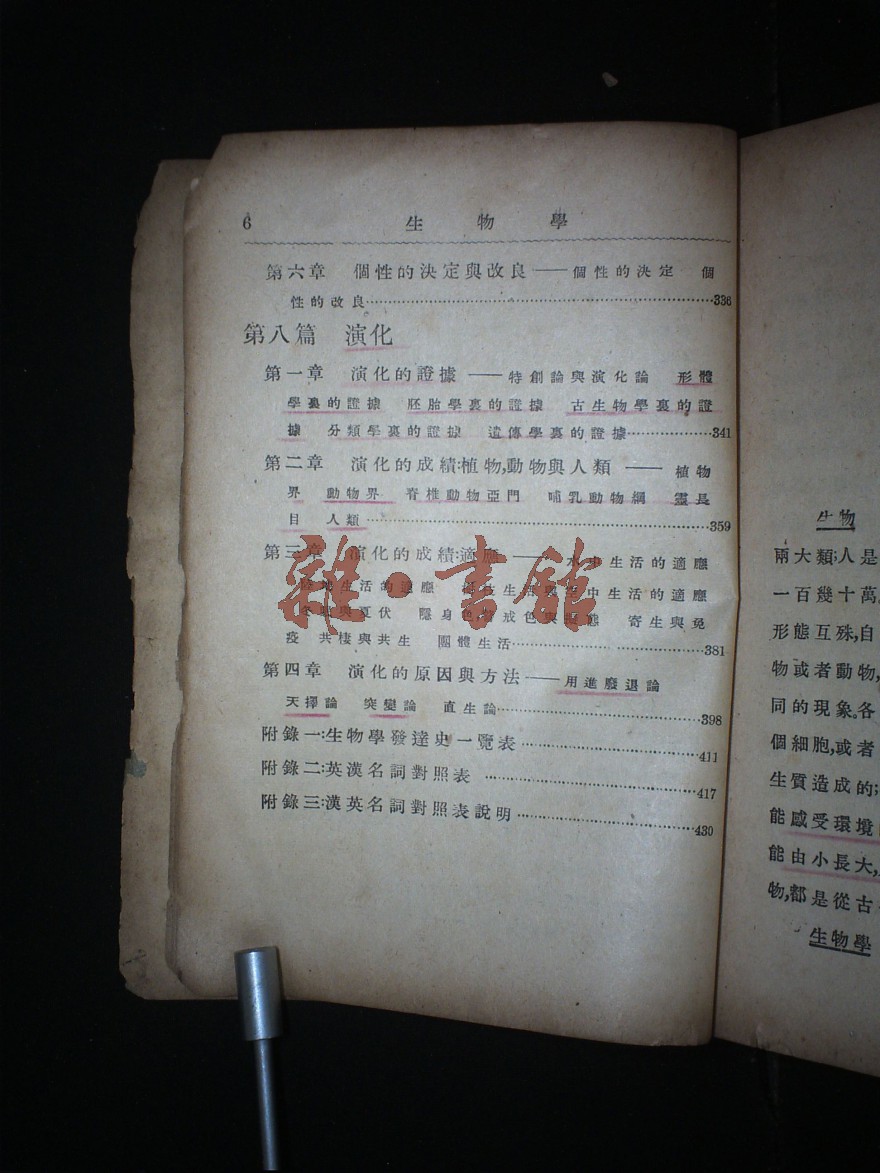 6 生物學
第六章 個性的決定與改良——個性的決定 個
性的改良……336
第八篇 演化
第一章 演化的證據——特創論與演化論 形體
學裏的證據 胚胎學裏的證據 古生物學裏的證
據 分類學裏的證據 遺傳學裏的證據……341
第二章 演化的成績:植物,動物與人類——植物
界 動物界 脊椎動物亞門 哺乳動物綱 靈長
目 人類……359
第三章 演化的成績:適應——水中生活的適應
陸地生活的適應 生活與空中生活的適應
與夏伏 隱身色,警戒色與擬態 寄生與免
疫 共棲與共生 團體生活……381
第四章 演化的原因與方法——用進廢退論
天擇論 突變論 直生論……398
附錄一:生物學發達史一覽表……411
附錄二:英漢名詞對照表……417
附錄三:漢英名詞對照表說明……430
雜·書館
生物
兩大類;人是
一百幾十萬。
形態互殊,自
物或者動物,
同的現象。各
個細胞,或者
生質造成的;
能感受環境
能由小長大,
物,都是從古
生物學